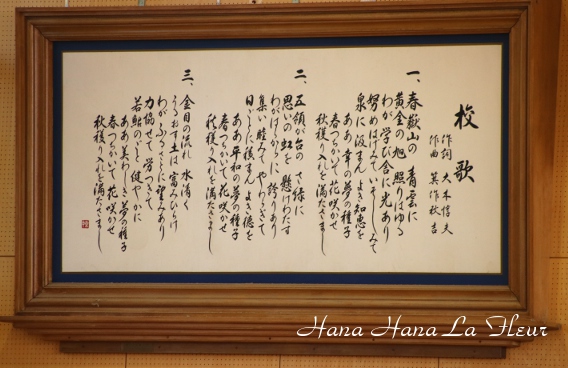 校歌
作詞 大木惇夫
作曲 箕作秋吉
一、春嶽山の 青雲に
黄金の旭 照りはゆる
わが学び舎に光あり
努めはげみていそしみて
泉に汲まん よき知恵を
ああ 幸の夢の種子
春つちかいて 花咲かせ
秋穫り入れを満たさまし
二、五領が台の さ緑に
思いの虹を 懸けわたす
わがはらからに 誇りあり
集い睦みて やわらぎて
日々に積まん よき徳を
ああ 平和の夢の種子
春つちかいて 花咲かせ
秋穫り入れを 満たさまし
三、金目の流れ 水清く
うるおす土は 富みひらけ
わがふるさとに 望みあり
力協せて 労つきて
若鮎のごと 健やかに
ああ 美わしき 夢の種子
春つちかいて 花咲かせ
秋穫り入れを 満たさまし
Hana Hana La Fleur